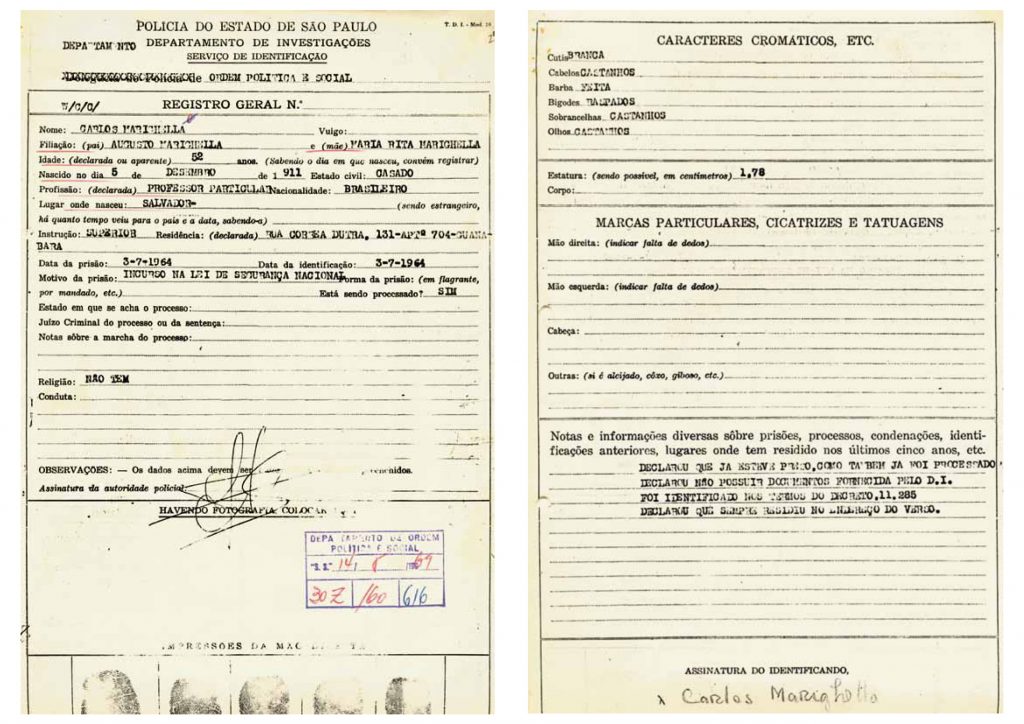 POLICIA DO ESTADO DE SÃO PAULO
T. D. I. - Mod. 19
DEPARTAMENTO DE INVESTIGAÇÕES
SERVIÇO DE IDENTIFICAÇÃO
de ORDEM POLITICA E SOCIAL
REGISTRO GERAL N.º
Nome: CARLOS MARIGHELLA Vulgo:
Filiação: (pai) AUGUSTO MARIGHELLA e (mãe) MARIA RITA MARIGHELLA
Idade: (declarada ou aparente) 52 anos. (Sabendo o dia em que nasceu, convém registrar)
Nascido no dia 5 de DESEMBRO de 1 911 Estado civil: CASADO
Profissão: (declarada) PROFESSOR PARTICULAR Nacionalidade: BRASILEIRO
Lugar onde nasceu: SALVADOR- (sendo estrangeiro,
há quanto tempo veiu para o pais e a data, sabendo-a)
Instrução: SUPERIOR Residência: (declarada) RUA CORREA DUTRA, 131-APTº 704-GUANA-
BARA
Data da prisão: 3-7-1964 Data da identificação: 3-7-1964
Motivo da prisão: INCURSO NA LEI DE SEGURANÇA NACIONAL Forma da prisão: (em flagrante,
por mandado, etc.) Está sendo processado? SIM
Estado em que se acha o processo:
Juízo Criminal do processo ou da sentença:
Notas sôbre a marcha do processo:
Religião: NÃO TEM
Conduta:
OBSERVAÇÕES: — Os dados acima devem ser
Assinatura da autoridade policial:
HAVENDO FOTOGRAFIA, COLOCAR
DEPARTAMENTO DE ORDEM
POLÍTICA E SOCIAL
"S. S." 14/ 8 /1969
30Z /60 616
IMPRESSÕES DA MÃO
CARACTERES CROMÁTICOS, ETC.
Cutis BRANCA
Cabelos CASTANHOS
Barba FEITA
Bigodes RASPADOS
Sobrancelhas CASTANHOS
Olhos CASTANHOS
Estatura: (sendo possível, em centímetros) 1,78
Corpo:
MARCAS PARTICULARES, CICATRIZES E TATUAGENS
Mão direita: (indicar falta de dedos)
Mão esquerda: (indicar falta de dedos)
Cabeça:
Outras: (si é aleijado, côxo, giboso, etc.)
Notas e informações diversas sôbre prisões, processos, condenações, identi-
ficações anteriores, lugares onde tem residido nos últimos cinco anos, etc.
DECLAROU QUE JA ESTEVE PRESO,COMO TAMBEM JA FOI PROCESSADO
DECLAROU NÃO POSSUIR DOCUMENTOS FORNECIDA PELO D.I.
FOI IDENTIFICADO NOS TERMOS DO DECRETO,11.285
DECLAROU QUE SEMPRE RESIDIU NO ENDEREÇO DO VERSO.
ASSINATURA DO IDENTIFICANDO,
x Carlos Marighella